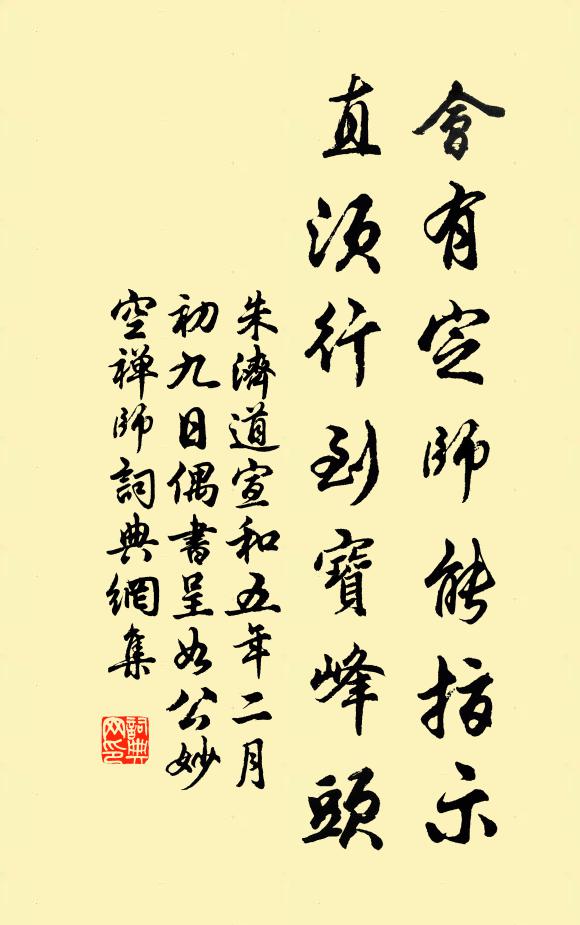 會有定師能指示
直須行到寶峰頭
朱濟道宣和五年二月
初九日偶書呈如公妙
空禪師詞典網集
詞典
网印